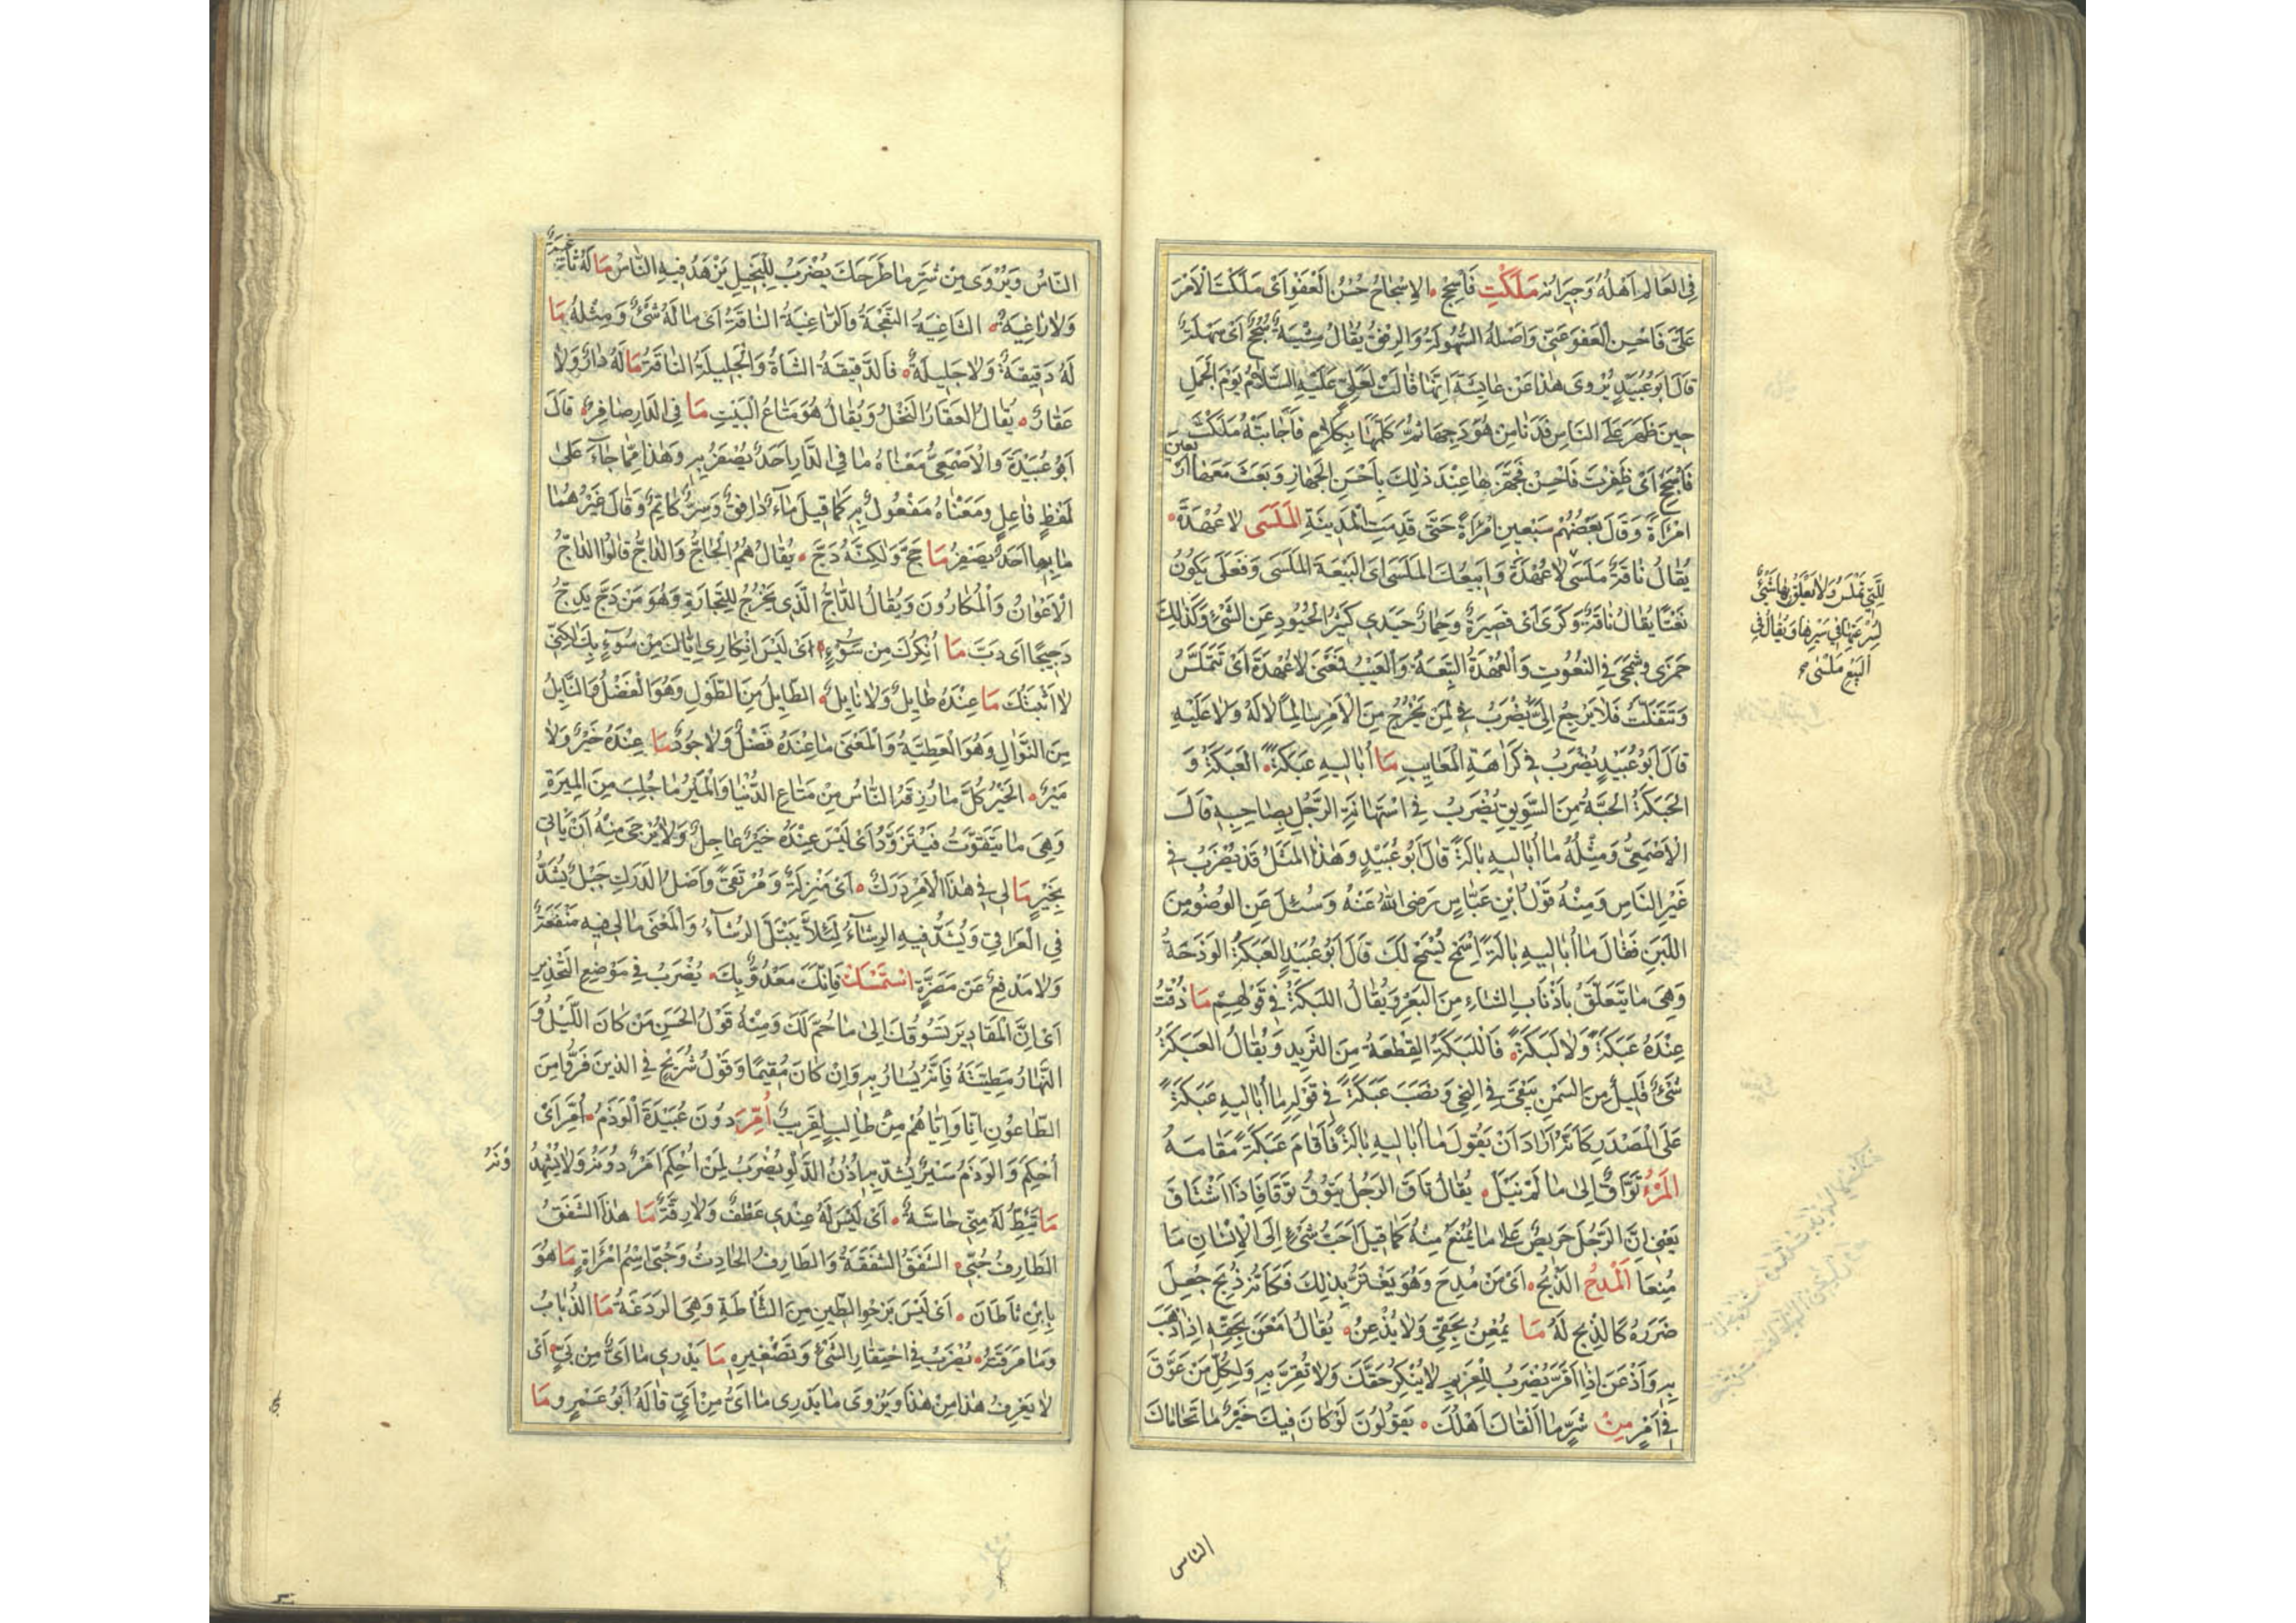 فِي العَالِمِ اَهْلُهُ وَجِيرَانُه مَلَكْتَ فَأَسْجِحْ الإِسْجَاحُ حُسْنُ الْعَفْوِ اَىْ مَلَكْتَ الْاَمْرَ
عَلَىَّ فَاَحْسِنِ الْعَفْوَ عَنِّى وَاَصْلُهُ السُّهُولَةُ وَالرِّفْقُ يُقَالُ مِشْيَةٌ سُجُحٌ اَىْ سَهْلَةٌ
قَالَ اَبُو عُبَيْدٍ يُرْوَى هٰذَا عَنْ عَايِشَةَ اِنَّهَا قَالَتْ لِعَلِيٍّ عَلَيْهِ السَّلَامُ يَوْمَ الْجَمَلِ
حِينَ ظَهَرَ عَلَى النَاسِ فَدَنَا مِنْ هَوْدَجِهَا ثُمَّ كَلَّمَهَا بِكَلَامٍ فَأَجَابَتْهُ مَلَكْتَ
فَأَسْجِحْ اَىْ ظَفِرْتَ فَاَحْسِنْ فَجَهَّزَهَا عِنْدَ ذٰلِكَ بِاَحْسَنِ الْجَهَازِ وَبَعَثَ مَعَهَا اَرْبَعِينَ
امْرَأَةً وَقَالَ بَعْضُهُمْ سَبْعِينَ امْرَأَةً حَتَّى قَدِمَتِ الْمَدِينَةَ الْمَلَسَى لَا عُهْدَةَ
يُقَالُ نَاقَةٌ مَلَسَى لَا عُهْدَةَ وَابِيعُكَ المَلَسَى اَى الْبَيْعَةَ المَلَسَى وَفَعَلَى يَكُونُ
نَعْتًا يُقَالُ نَاقَةٌ وَكَرَى اَىْ قَصِيرَةٌ وَحِمَارٌ حَيَدَى كَثِيرُ الْحُيُودِ عَنِ الشَّىْءِ وَكَذٰلِكَ
جَمَزَى وشَمَجَى فِي النُعُوتِ وَالْعُهْدَةُ التَّبِعَةُ وَالْعَيْبُ فَمَعْنَى لَا عُهْدَةَ اَىْ تَتَمَلَّسُ
وَتَتَفَلَّتُ فَلَا تَرْجِعُ اِلَىَّ يُضْرَبُ فِي لِمَنْ يَخْرُجُ مِنَ الْاَمْرِ سَالِمًا لَا لَهُ وَلَا عَلَيْهِ
قَالَ اَبُو عُبَيْدٍ يُضْرَبُ فِي كَرَاهَةِ الْمَعَايِبِ مَا اُبَالِيهِ عَبَكَةً العَبَكَةُ وَ
الحَبَكَةُ الحَبَّةُ مِنَ السَّوِيقِ يُضْرَبُ فِي اسْتِهَانَةِ الرَّجُلِ بِصَاحِبِهِ قَالَ
الْاَصْمَعِيُّ وَمِثْلُهُ مَا اُبَالِيهِ بَالَةً قَالَ اَبُو عُبَيْدٍ وَهٰذَا الْمَثَلُ قَدْ يُضْرَبُ فِي
غَيْرِ النَاسِ وَمِنْهُ قَوْلُ ابْنِ عَبَّاسٍ رَضِىَ اللهُ عَنْهُ وَسُئِلَ عَنِ الوُضُوءِ مِنَ
اللَبَنِ فَقَالَ مَا اُبَالِيهِ بَالَةً اِسْمَحْ يُسْمَحْ لَكَ قَالَ اَبُو عُبَيْدٍ العَبَكَةُ الوَذَحَةُ
وَهِىَ مَا يَتَعَلَّقُ بِاَذْنَابِ الشَّاءِ مِنَ البَعَرِ وَيُقَالُ اللَبَكَةُ فِي قَوْلِهِمْ مَا ذُقْتُ
عِنْدَهُ عَبَكَةً وَلَا لَبَكَةً فَاللَبَكَةُ القِطْعَةُ مِنَ الثَرِيدِ وَيُقَالُ العَبَكَةُ
شَىْءٌ قَلِيلٌ مِنَ السَمْنِ يَبْقَى فِي النِحْيِ وَنَصَبَ عَبَكَةً فِي قَوْلِهِ مَا اُبَالِيهِ عَبَكَةً
عَلَى الْمَصْدَرِ كَأَنَّهُ اَرَادَ اَنْ يَقُولَ مَا اُبَالِيهِ بَالَةً فَاَقَامَ عَبَكَةً مَقَامَهُ
الْمَرْءُ تَوَّاقٌ اِلَى مَا لَمْ يَنَلْ يُقَالُ تَاقَ الرَجُلُ يَتُوقُ تَوَقَانًا اِذَا اشْتَاقَ
يَعْنِى اَنَّ الرَّجُلَ حَرِيصٌ عَلَى مَا يُمْنَعُ مِنْهُ كَمَا قِيلَ اَحَبُّ شَىْءٍ اِلَى الْاِنْسَانِ مَا
مُنِعَا اَلْمَدْحُ الذَّبْحُ اَىْ مَنْ مُدِحَ وَهُوَ يَغْتَرُّ بِذٰلِكَ فَكَاَنَّهُ ذُبِحَ جُعِلَ
ضَرَرُهُ كَالذَّبْحِ لَهُ مَا يُمْعِنُ بِحَقِّى وَلَا يُذْعِنُ يُقَالُ اَمْعَنَ بِحَقِّهِ اِذَا ذَهَبَ
بِهِ وَاَذْعَنَ اِذَا اَقَرَّ يُضْرَبُ لِلْغَرِيمِ لَا يُنْكِرُ حَقَّكَ وَلَا يُقِرُّ بِهِ وَلِكُلِّ مَنْ عَوَّقَ
فِي اَمْرٍ مِنْ شَرٍّ مَا اَلْقَاكَ اَهْلُكَ يَقُولُونَ لَوْ كَانَ فِيكَ خَيْرٌ مَا تَحَامَاكَ
لِلَّتِي تَمْلُسُ وَلَا يَعْلَقُ بِهَا شَىْءٌ
لِسُرْعَتِهَا فِي سَيْرِهَا وَيُقَالُ فِي
الْبَيْعِ مَلَسَى
الناس
النَّاسُ وَيُرْوَى مِنْ شَرٍّ مَا طَرَحَكَ يُضْرَبُ لِلْبَخِيلِ يَزْهَدُ فِيهِ النَّاسُ مَا لَهُ ثَاغِيَةٌ
وَلَا رَاغِيَةٌ الثَاغِيَةُ النَعْجَةُ وَالرَاغِيَةُ النَاقَةُ اَىْ مَا لَهُ شَىْءٌ وَمِثْلُهُ مَا
لَهُ دَقِيقَةٌ وَلَا جَلِيلَةٌ فَالدَّقِيقَةُ الشَاةُ وَالْجَلِيلَةُ النَاقَةُ مَا لَهُ دَارٌ وَلَا
عَقَارٌ يُقَالُ العَقَارُ النَخْلُ وَيُقَالُ هُوَ مَتَاعُ الْبَيْتِ مَا فِي الدَارِ صَافِرٌ قَالَ
اَبُو عُبَيْدَةَ وَالْاَصْمَعِيُّ مَعْنَاهُ مَا فِي الدَّارِ اَحَدٌ يُصْفَرُ بِهِ وَهٰذَا مِمَّا جَاءَ عَلَى
لَفْظِ فَاعِلٍ وَمَعْنَاهُ مَفْعُولٌ بِهِ كَمَا قِيلَ مَاءٌ دَافِقٌ وَسِرٌّ كَاتِمٌ وَقَالَ غَيْرُهُمَا
مَا بِهَا اَحَدٌ يَصْفِرُ مَا حَجَّ وَلٰكِنَّهُ دَجَّ يُقَالُ هُمُ الْحَاجُّ وَالدَاجُّ قَالُوا الدَاجُّ
الْاَعْوَانُ وَالْمُكَارُونَ وَيُقَالُ الدَّاجُّ الَّذِى يَخْرُجُ لِلتِّجَارَةِ وَهُوَ مِنْ دَجَّ يَدِجُّ
دَجِيجًا اَى دَبَّ مَا اُنْكِرُكَ مِنْ سُوءٍ اَىْ لَيْسَ اِنْكَارِى اِيَّاكَ مِنْ سُوءٍ بِكَ لٰكِنِّى
لَا اُثْبِتُكَ مَا عِنْدَهُ طَايِلٌ وَلَا نَايِلٌ الطَّايِلُ مِنَ الطَّوْلِ وَهُوَ الْفَضْلُ وَالنَّايِلُ
مِنَ النَّوَالِ وَهُوَ الْعَطِيَّةُ وَالْمَعْنَى مَا عِنْدَهُ فَضْلٌ وَلَا جُودٌ مَا عِنْدَهُ خَيْرٌ وَلَا
مَيْرٌ الْخَيْرُ كُلُّ مَا رُزِقَهُ النَّاسُ مِنْ مَتَاعِ الدُّنْيَا وَالْمَيْرُ مَا جُلِبَ مِنَ المِيرَةِ
وَهِىَ مَا يُتَقَوَّتُ فَيُتَزَوَّدُ اَىْ لَيْسَ عِنْدَهُ خَيْرٌ عَاجِلٌ وَلَا يُرْجَى مِنْهُ اَنْ يَاْتِىَ
بِخَيْرٍ مَا لِى فِي هٰذَا الْاَمْرِ دَرَكٌ اَىْ مَنْزِلَةٌ وَمُرْتَقًى وَاَصْلُ الدَرَكِ حَبْلٌ يُشَدُّ
فِي الْعَرَاقِي وَيُشَدُّ فِيهِ الرِشَاءُ لِئَلَّا يَبْتَلَّ الرِشَاءُ وَالْمَعْنَى مَا لِى فِيهِ مَنْفَعَةٌ
وَلَا مَدْفَعٌ عَنْ مَضَرَّةٍ اسْتَمْسِكْ فَاِنَّكَ مَعْدُوٌّ بِكَ يُضْرَبُ فِي مَوْضِعِ التَّحْذِيرِ
اَىْ اِنَّ الْمَقَادِيرَ تَسُوقُكَ اِلَى مَا حُمَّ لَكَ وَمِنْهُ قَوْلُ الْحَسَنِ مَنْ كَانَ اللَّيْلُ وَ
النَّهَارُ مَطِيَّتَهُ فَاِنَّهُ يُسَارُ بِهِ وَاِنْ كَانَ مُقِيمًا وَقَوْلُ شُرَيْحٍ فِي الذينَ فَرُّوا مِنَ
الطَّاعُونِ اِنَّا وَاِيَّاهُمْ مِنْ طَالِبٍ لَقَرِيبٌ اُمِرَّ دُونَ عُبَيْدَةَ الْوَذَمُ اُمِرَّ اَىْ
اُحْكِمَ وَالوَذَمُ سَيْرٌ يُشَدُّ بِهِ اُذُنُ الدَّلْوِ يُضْرَبُ لِمَنْ اُحْكِمَ اَمْرٌ دُونَهُ وَلَا يُشْهَدُ
مَا تَئِطُّ لَهُ مِنِّى حَاسَّةٌ اَىْ لَيْسَ لَهُ عِنْدِى عَطْفٌ وَلَا رِقَّةٌ مَا هٰذَا الشَّفَقُ
الطَارِفُ حُبَّى الشَّفَقُ الشَّفَقَةُ وَالطَارِفُ الحَادِثُ وَحُبَّى اسْمُ امْرَأَةٍ مَا هُوَ
بِابْنِ ثَأْطَانَ اَىْ لَيْسَ بِرَخْوِ الطِّينِ مِنَ الثَّأْطَةِ وَهِىَ الرَدَغَةُ مَا الذُبَابُ
وَمَا مَرَقَتُهُ يُضْرَبُ فِي احْتِقَارِ الشَّىْءِ وَتَصْغِيرِهِ مَا يَدْرِى مَا اَىٌّ مِنْ بَىٍّ اَىْ
لَا يَعْرِفُ هٰذَا مِنْ هٰذَا وَيُرْوَى مَا يَدْرِى مَا اَىٌّ مِنْ اَىٍّ قَالَهُ اَبُو عَمْرٍو مَا